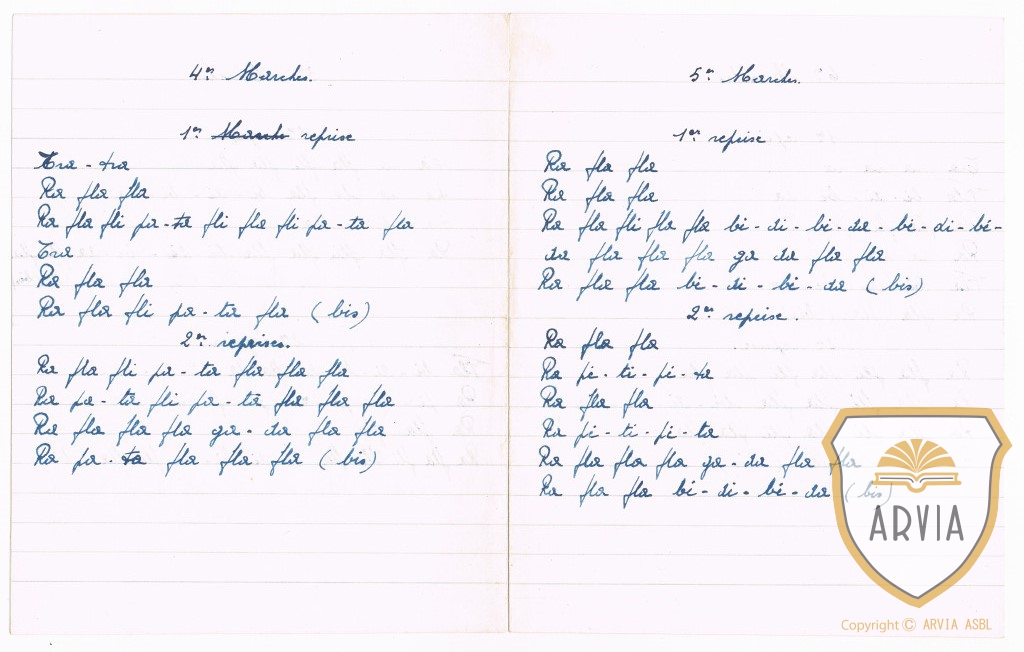 4er Marches.
1er March reprise
Tra - tra
Ra fla fla
Ra fla fli pa-ta fli fla fli pa-ta fla
Tra
Ra fla fla
Ra fla fli pa-ta fla (bis)
2er reprises.
Ra fla fli pa-ta fla fla fla
Ra pa-ta fli pa-ta fla fla fla
Ra fla fla fla ga-da fla fla
Ra pa-ta fla fla fla (bis)
5er Marches.
1er reprise
Ra fla fla
Ra fla fla
Ra fla fli fla fla bi-di-bi-da-bi-di-bi-
da fla fla fla ga da fla fla
Ra fla fla bi-di-bi-da (bis)
2er reprise.
Ra fla fla
Ra pi-ti-pi-ta
Ra fla fla
Ra pi-ti-pi-ta
Ra fla fla fla ga-da fla fla
Ra fla fla bi-di-bi-da (bis)
ARVIA
Copyright © ARVIA ASBL